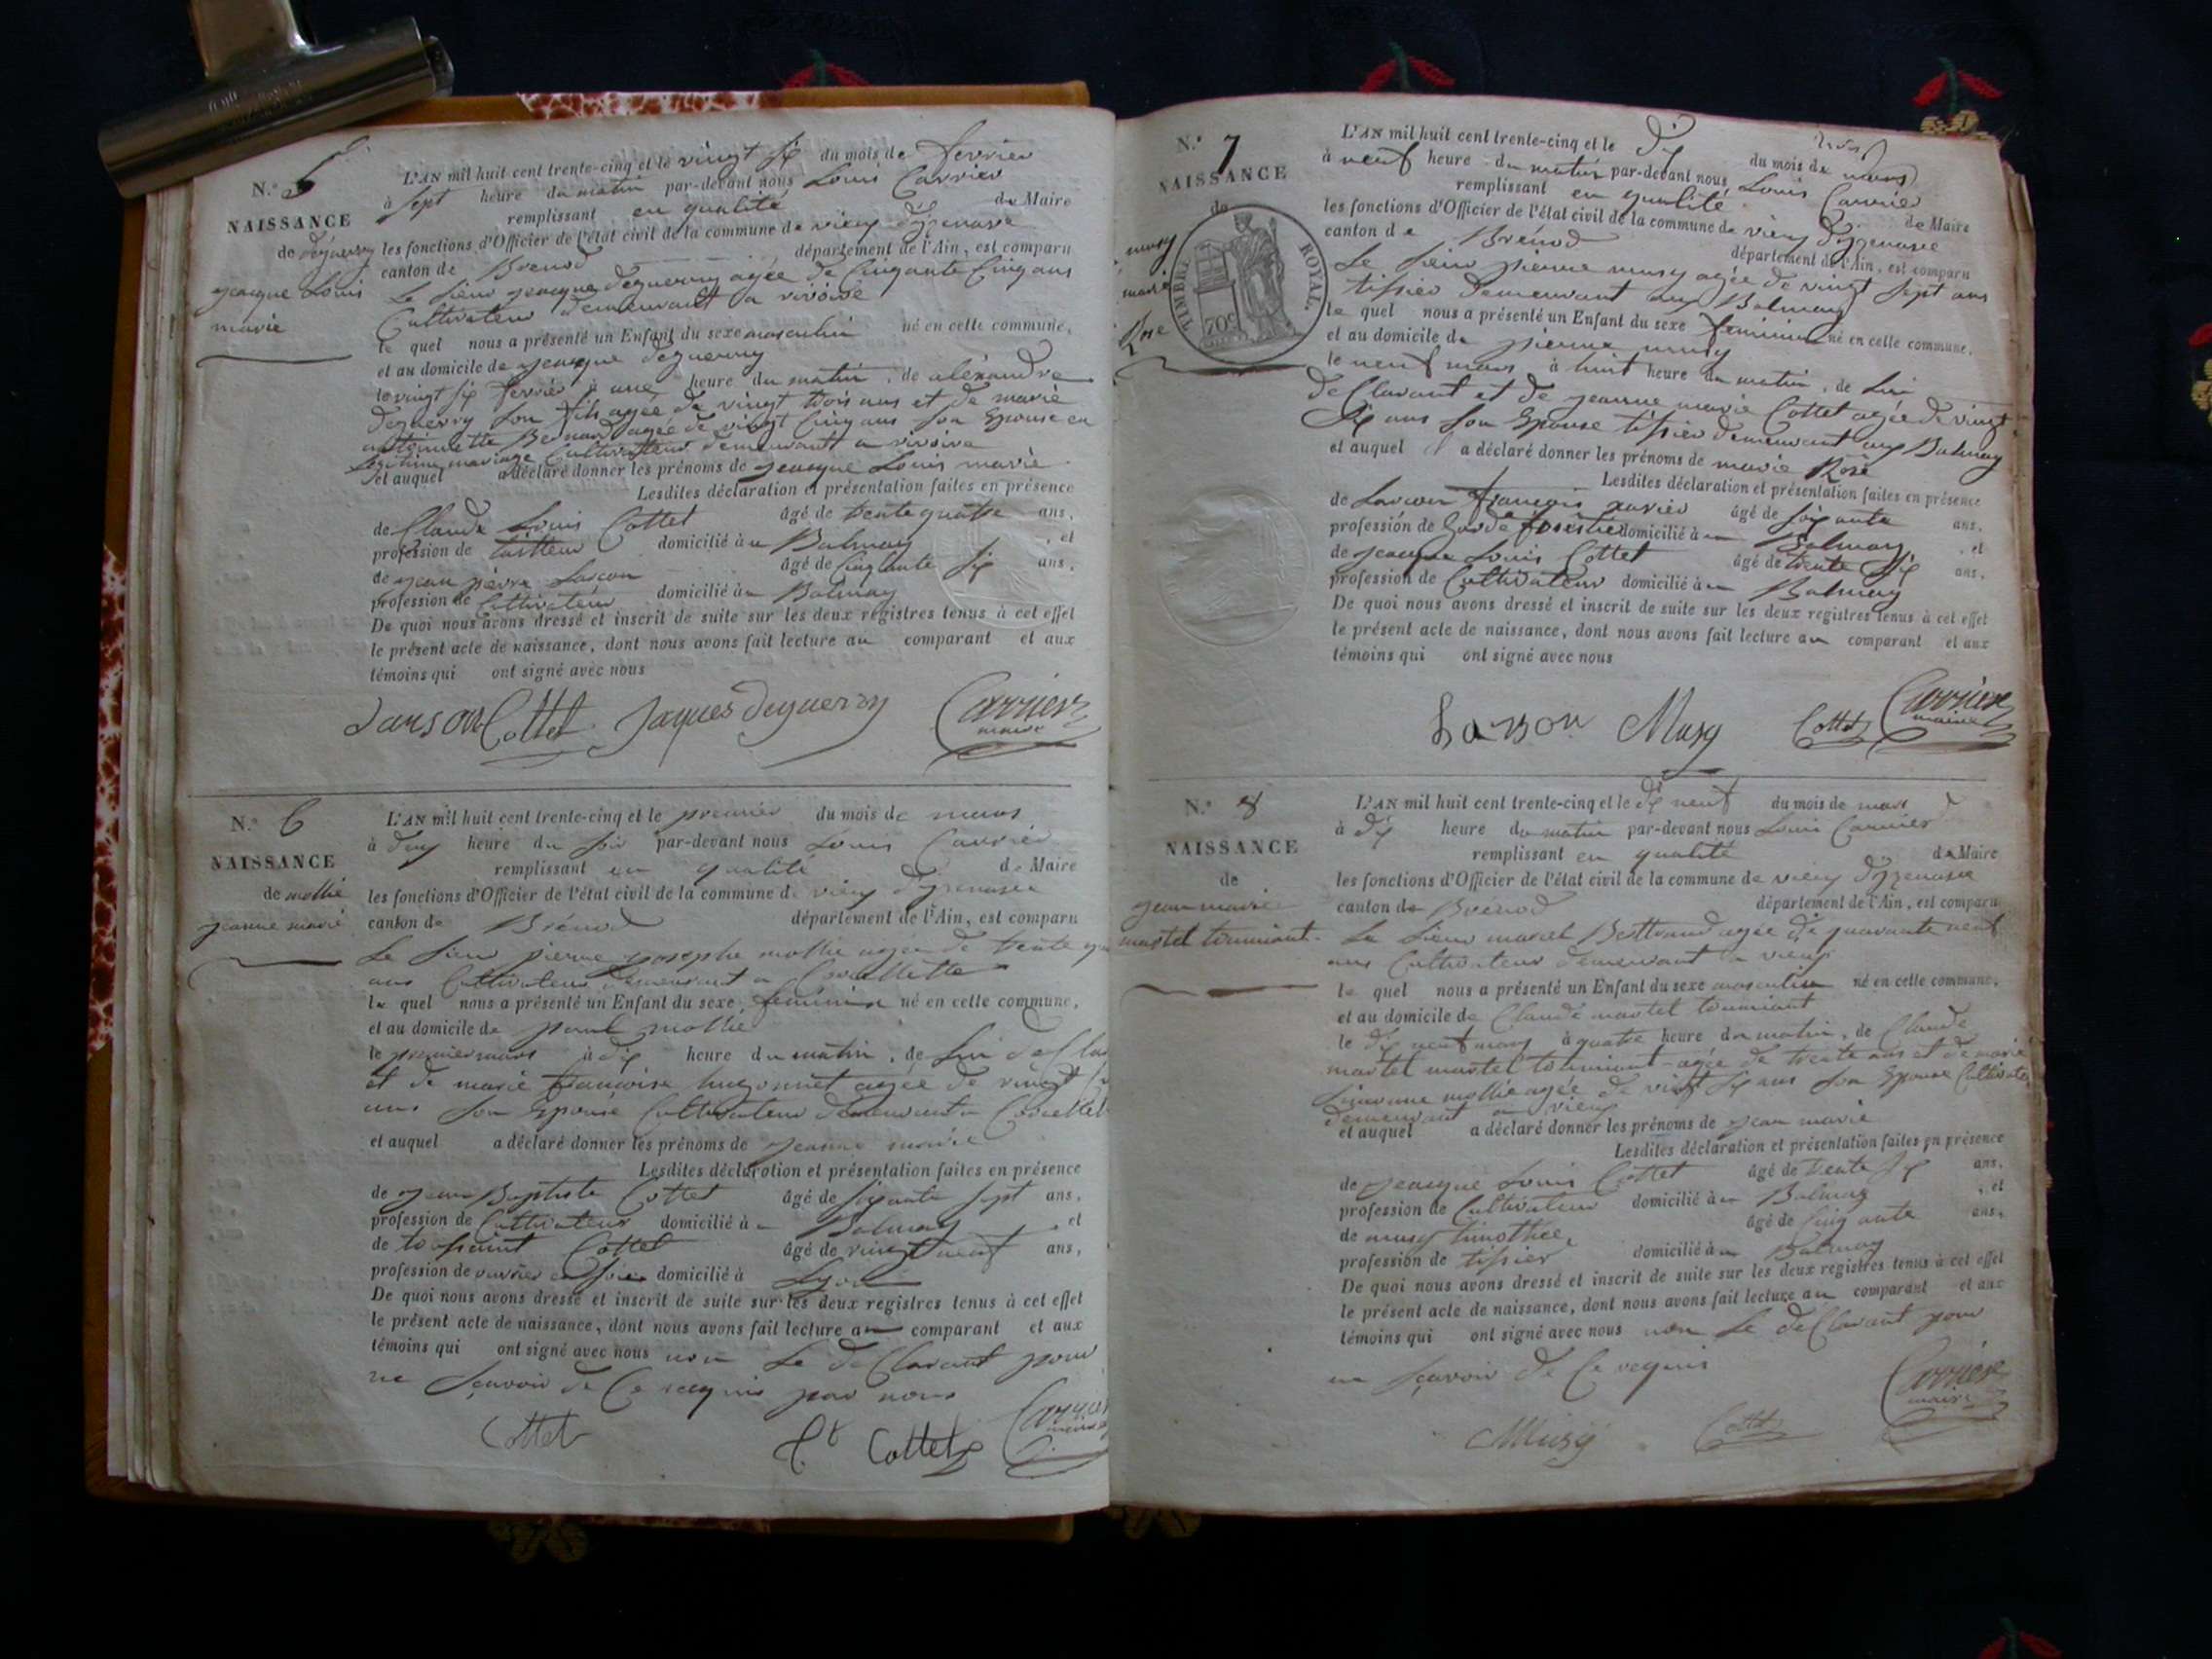 N.° 5
NAISSANCE
de deguerry
jeacque Louis
marie
L'AN mil huit cent trente-cinq et le vingt six du mois de fevrier
à sept heure du matin par-devant nous Louis Carrier
remplissant en qualité de Maire
les fonctions d'Officier de l'état civil de la commune de vieux d'izenave
canton de Brenod département de l'Ain, est comparu
Le sieur jeacque deguerry agée de Cinquante Cinq ans
Cultivateur demeurant a rivoire
le quel nous a présenté un Enfant du sexe masculin né en cette commune,
et au domicile de jeacque deguerry
le vingt six fevrier à une heure du matin, de aléxandre
deguerry son fils agée de vingt trois ans et de marie
Bernard agée de vingt Cinq ans son Epouse en
Légitime mariage Cultivateur demeurant a rivoire
et auquel a déclaré donner les prénoms de jeacque Louis marie
Lesdites déclaration et présentation faites en présence
de Claude Louis Cottet âgé de trente quatre ans,
profession de domicilié à Balmay, et
de jean pierre Larçon âgé de Cinquante six ans,
profession de Cultivateur domicilié à Balmay
De quoi nous avons dressé et inscrit de suite sur les deux registres tenus à cet effet
le présent acte de naissance, dont nous avons fait lecture au comparant et aux
témoins qui ont signé avec nous
Larson Cottet Jaques deguerry Carrier
maire
N.° 6
NAISSANCE
de mollie
jeanne marie
L'AN mil huit cent trente-cinq et le premier du mois de mars
à deux heure du soir par-devant nous Louis Carrier
remplissant en qualité de Maire
les fonctions d'Officier de l'état civil de la commune de vieux d'izenave
canton de Brénod département de l'Ain, est comparu
Le sieur pierre josephe mollie agée de trente
ans Cultivateur demeurant a Corcellette
le quel nous a présenté un Enfant du sexe féminin né en cette commune,
et au domicile de paul mollie
le premier mars à dix heure du matin, de Lui
et de marie francoise hugonnet agée de vingt
ans son Epouse Cultivateur demeurant a
et auquel a déclaré donner les prénoms de jeanne marie
Lesdites déclarotion et présentation faites en présence
de jean Baptiste Cottet âgé de soixante sept ans,
profession de Cultivateur domicilié à Balmay, et
de toussaint Cottet âgé de vingt neuf ans,
profession de ouvrier en soie domicilié à Lyon
De quoi nous avons dressé et inscrit de suite sur les deux registres tenus à cet effet
le présent acte de naissance, dont nous avons fait lecture au comparant et aux
témoins qui ont signé avec nous non Le deClarant pour
ne sçavoir de Ce requis par nous
Cottet Ct Cottet
N.° 7
NAISSANCE
de
musy
marie
Rose
TIMBRE ROYAL
70c
L'AN mil huit cent trente-cinq et le dix du mois de mars
à neuf heure du matin par-devant nous Louis Carrier
remplissant en qualité de Maire
les fonctions d'Officier de l'état civil de la commune de vieux d'izenave
canton de Brénod département de l'Ain, est comparu
Le sieur pierre musy agée de vingt sept ans
tissier demeurant aux Balmay
le quel nous a présenté un Enfant du sexe feminin né en cette commune,
et au domicile de pierre musy
le neuf mars à huit heure du matin, de Lui
deClarant et de jeanne marie Cottet agée de vingt
six ans son Epouse tissier demeurant aux Balmay
et auquel il a déclaré donner les prénoms de marie Rose
Lesdites déclaration et présentation faites en présence
de Larçon françois xavier âgé de soixante ans,
profession de Garde forestier domicilié à Balmay, et
de jeacque Louis Cottet âgé de trente six ans,
profession de Cultivateur domicilié à Balmay
De quoi nous avons dressé et inscrit de suite sur les deux registres tenus à cet effet
le présent acte de naissance, dont nous avons fait lecture au comparant et aux
témoins qui ont signé avec nous
Larson Musy Cottet Carrier
maire
N.° 8
NAISSANCE
de
jean marie
martel tourniant
L'AN mil huit cent trente-cinq et le dix neuf du mois de mars
à dix heure du matin par-devant nous Louis Carrier
remplissant en qualité de Maire
les fonctions d'Officier de l'état civil de la commune de vieux d'izenave
canton de Brénod département de l'Ain, est comparu
Le sieur marcel Berttrand agée de quarante neuf
ans Cultivateur demeurant a vieux
le quel nous a présenté un Enfant du sexe masculin né en cette commune,
et au domicile de Claude martel tourniant
le dix neuf mars à quatre heure du matin, de Claude
martel martel tourniant agée de trente ans et de marie
mollie agée de vingt six ans son Epouse Cultivateur
demeurant a vieux
et auquel a déclaré donner les prénoms de jean marie
Lesdites déclaration et présentation faites en présence
de jeacque Louis Cottet âgé de trente six ans,
profession de Cultivateur domicilié à Balmay, et
de musy timothée âgé de Cinquante ans,
profession de tissier domicilié à Balmay
De quoi nous avons dressé et inscrit de suite sur les deux registres tenus à cet effet
le présent acte de naissance, dont nous avons fait lecture au comparant et aux
témoins qui ont signé avec nous non Le deClarant pour
ne sçavoir de Ce requis
Musy Cottet Carrier
maire